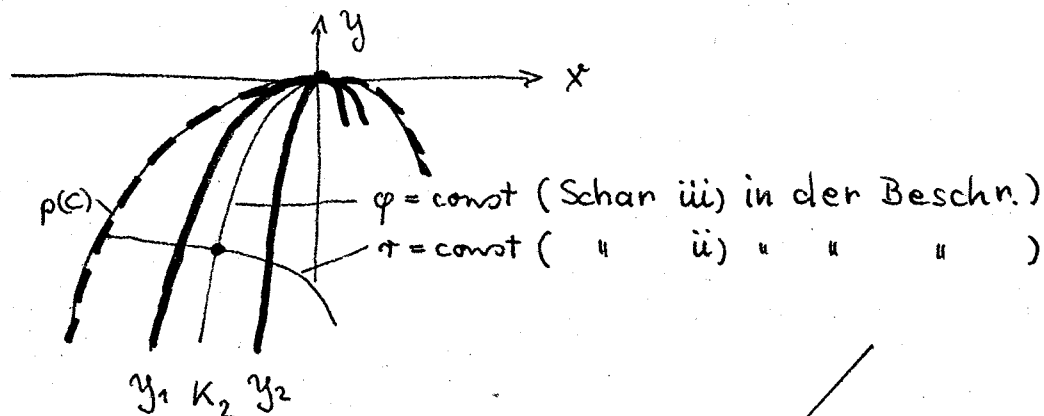 y
x
p(C)
φ = const ( Schar iii) in der Beschr. )
τ = const ( " ii) " " " )
y₁ K₂ y₂